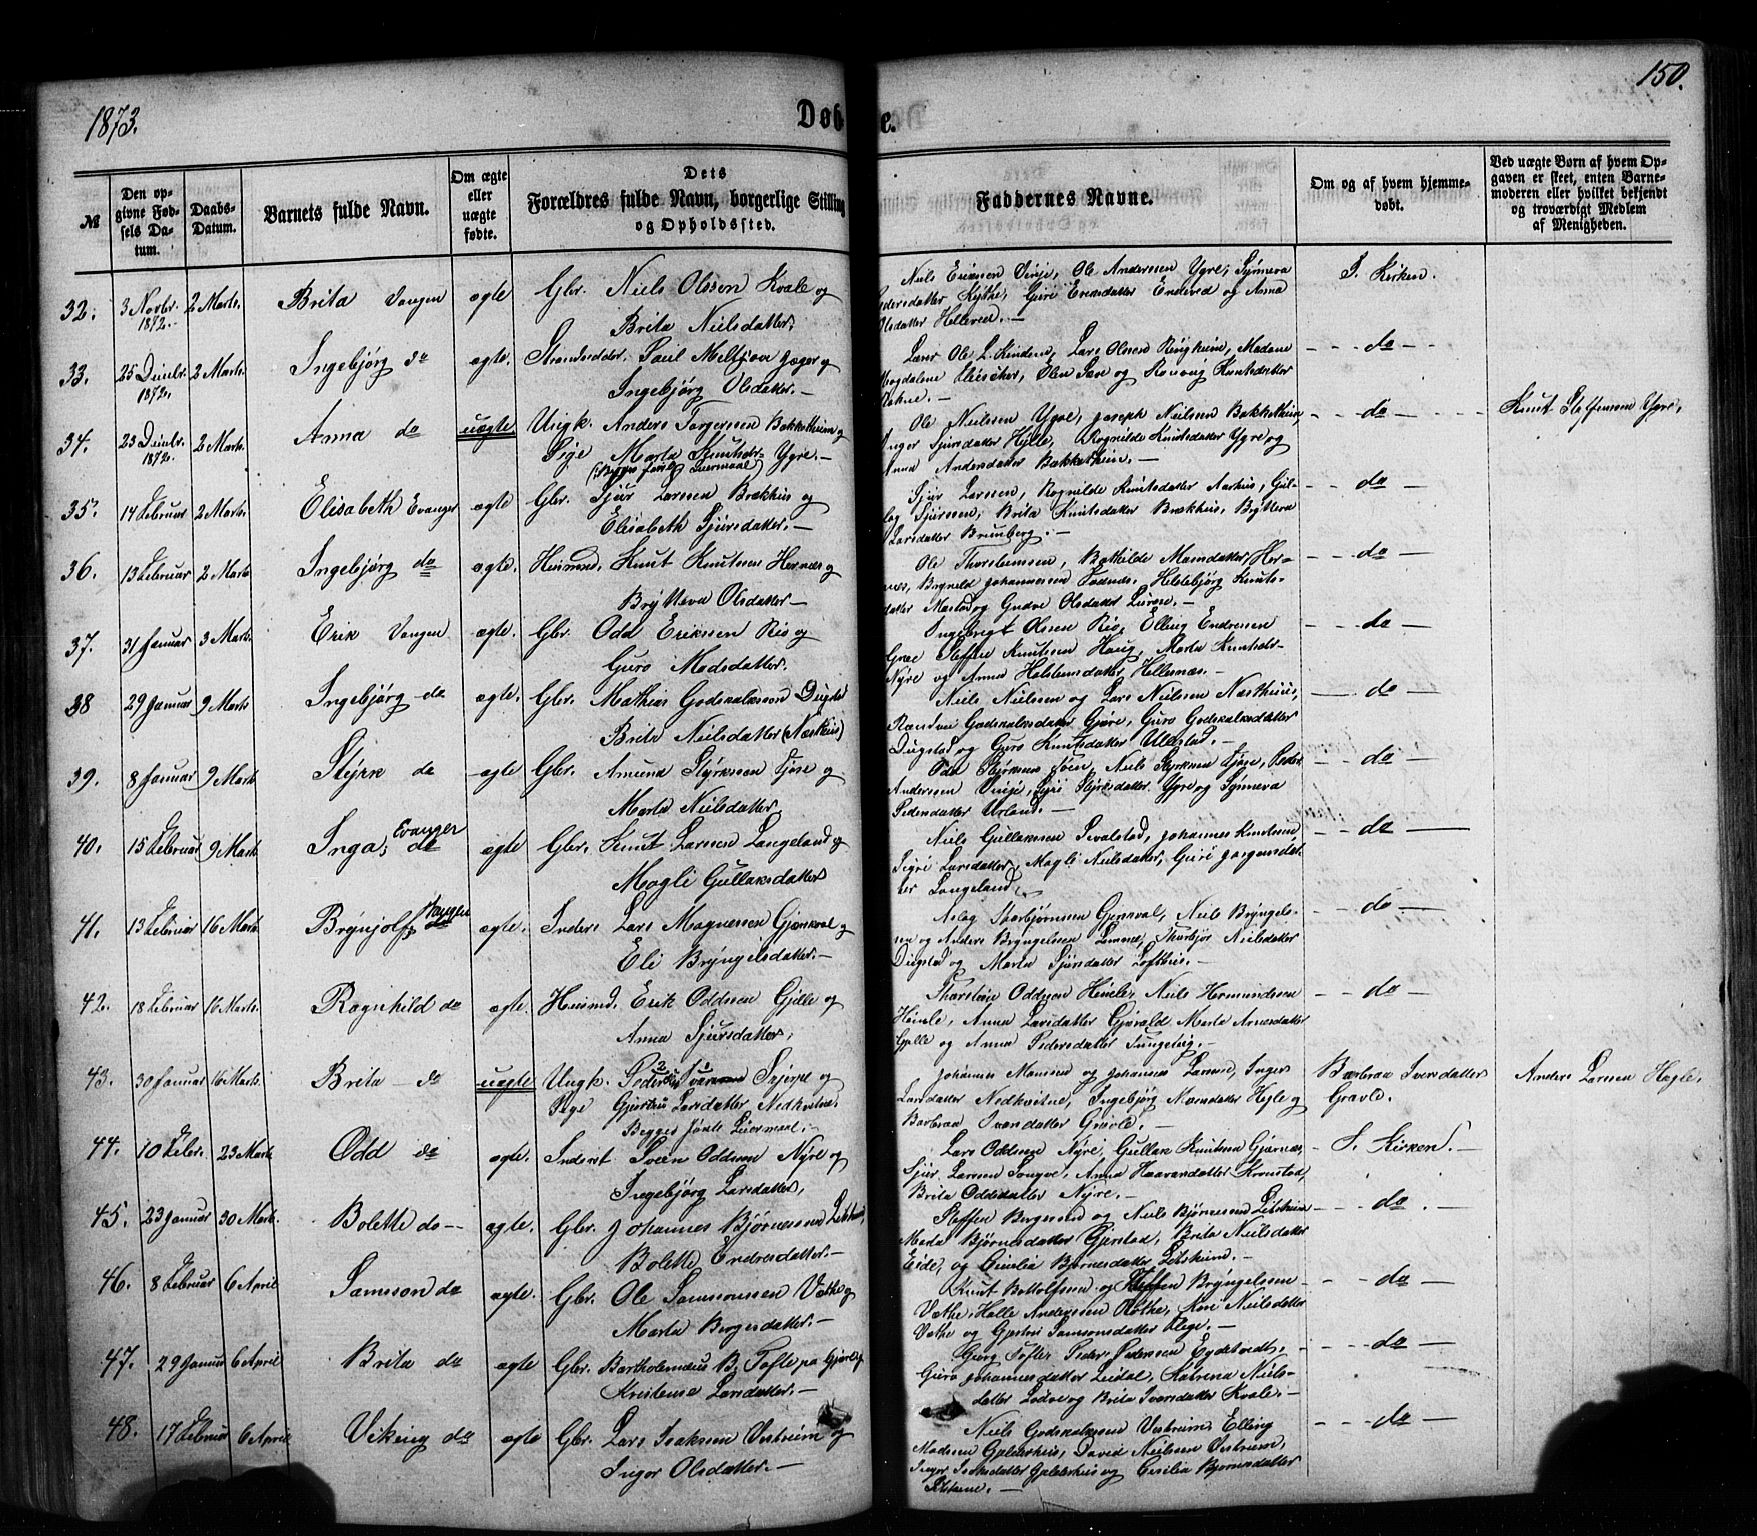 1873.
Døbte.
150.
№
Den opgivne Fødsels Datum.
Daabs-Datum.
Barnets fulde Navn.
Om ægte eller uægte fødte.
Dets Forældres fulde Navn, borgerlige Stilling og Opholdssted.
Faddernes Navne.
Om og af hvem hjemmedøbt.
Ved uægte Børn af hvem Opgaven er skeet, enten Barnemoderen eller hvilket bekjendt og troværdigt Medlem af Menigheden.
32. 3 Novbr. 1872. 2 Marts. Brita Vangen ægte Gbr. Niels Olsson Kvale og
Brita Nielsdatter.
Niels Eriksen Vinje, Ole Anderssen Ygre, Synneva
Pedersdatter Kythe, Guri Eriksdatter Endeved og Anna
Olsdatter Helleved. —
I. Kirken.
33. 25 Decbr. 1872. 2 Marts. Ingebjørg do ægte. Strandsidder Paul Meltzior Jæger og
Ingebjørg Olsdatter. —
Lærer Ole L. Kindem, Lars Olsen Ringheim, Madame
Magdalene Fleischer,
— do —
34. 23 Decbr. 1872. 2 Marts. Anna do uægte Ungk. Anders Torgersen Bakketheim og
Pige Marta Knutsdr Ygre. —
(Begges første Leiermaal)
Ole Nielssen Ygre, Joseph Nielsen Bakketheim,
Inger Sjursdatter Hylle, Rognilde Knutsdatter Ygre og
Anna Andersdatter Bakketheim. —
— do —
Knut Steffensen Ygre,
35. 14 Februar 2 Marts. Elisabeth Evanger ægte Gbr. Sjur Larssen Brækhus og
Elisabeth Sjursdatter. —
Sjur Larssen, Rognilde Knutsdatter Aarhus, Gullag
Sjurssen, Brita Knutsdatter Brækhus, Brytteva
Larsdatter Brunborg. —
— do —
36. 13 Februar 2 Marts Ingebjørg do ægte. Husmd. Knut Knutsen Hernæs og
Brytteva Olsdatter —
Ole Thorsteinssen, Bothilde Monsdatter Hernæs,
Brynild Johannessen Fadnes, Hellebjørg Knutsdatter
— do —
37. 31 Januar 3 Marts. Erik Vangen ægte. Gbr. Odd Eriksen Rio og
Guro Madsdatter.
Ingebrigt Olssen Rio, Elling Endresen
Græe Steffen Knutssen Haug, Marta Knutsdr
Nyre og Anna Holstensdatter, Hellesnæs. —
— do —
38 29 Januar 9 Marts Ingebjørg do ægte. Gbr. Mathias Godskalkssen Dugstad
Brita Nielsdatter (Næsthus)
Niels Nielssen og Lars Nielssen Næsthuus,
Randvei Godskalksdatter Gjøre, Guro Godskalksdatter
Dugstad og Guro Knutsdatter Ullestad. —
— do —
39. 8 Januar 9 Marts Styrk do ægte Gbr. Amund Styrkssen Tjøse og
Marta Nielsdatter
Andersen Vinje, Syri Styrksdatter Ygre og Synneva
Pedersdatter Urland. —
— do —
40. 15 Februar 9 Marts. Inga, Evanger do ægte Gbr. Knut Larssen Langeland og
Magli Gullaksdatter
Niels Gullakssen Sevalstad, Johannes Knutssen,
Sigri Larsdatter, Magli Nielsdatter, Guri Jørgensdatter
Langeland.
— do —
41. 13 Februar 16 Marts. Brynjolf, Vangen do ægte. Inders. Lars Magnessen Gjernsval og
Eli Bryngelsdatter. —
Aslag Thorbjørnssen Gjernsval, Niels Bryngelssen
og Anders Bryngelssen Lemme, Thorbjør Nielsdatter
Dugstad og Marta Sjursdatter Lofthus. —
— do —
42. 18 Februar 16 Marts. Ragnhild do ægte. Husmd. Erik Oddssen Gjelle og
Anna Sjursdatter,
Thorstein Oddsen Himle, Niels Hermundssen
Himle, Anna Larsdatter Gjerald, Marta Arnesdatter
Gjelle og Anna Pedersdatter Tungeteig. —
— do —
43. 30 Januar 16 Marts. Brita — do uægte Ungk. Peder Iversen Skjerpe og
Pige Gjertrud Larsdatter Nedkvitne.
Begges første Leiermaal. —
Johannes Monssen og Johannes Larssen, Inger
Larsdatter Nedkvitne, Ingebjørg Monsdatter Hegle og
Barbraa Iversdatter Gravle. —
Barbraa Iversdatter
Gravle.
Anders Larssen Hegle.
44. 10 Febr. 23 Marts Odd do ægte. Inderst Svein Oddssen Nyre og
Ingebjørg Larsdatter,
Lars Oddssen Nyre, Gullak Knutssen Gjernæs,
Sjur Larssen Songve, Anna Haavardsdatter Kvenstad,
Brita Oddsdatter Nyre. —
I. Kirken. —
45. 23 Januar 30 Marts. Bolette do — ægte. Gbr. Johannes Bjørnessen Lidsheim,
Bolette Endresdatter. —
Steffen Bergessen og Niels Bjørnessen Lidsheim
Marta Bjørnesdatter Gjerstad, Brita Nielsdatter
Eide, og Cecilia Bjørnesdatter Lidsheim. —
do.
46. 8 Februar 6 April Samsson do ægte. Gbr. Ole Samsonssen Væthe og
Marta Bergesdatter. —
Knut Botholfssen og Steffen Bryngelssen
Væthe, Helle Anderssen Rothe, Kari Nielsdatter
Væthe og Gjertru Samsonsdatter Flege. —
— do —
47. 29 Januar 6 April Brita do ægte Gbr. Bartholomæus B. Tofte paa Gjøre og
Kristense Larsdatter. —
Georg Tofte, Peder Pederssen Eggtvedt,
Guro Johannesdatter Leidal, Katrina Nielsdatter
Lødve og Brita Iversdatter Kvale. —
— do —
48. 17 Februar 6 April Viking do ægte Gbr. Lars Isakssen Vestreim og
Inger Olsdatter. —
Niels Godskalkssen Vestreim, Elling
Madssen Gjelderhus, David Nielssen Vestreim,
Inger Isaksdatter Gjelderhus og Cecilia Bjørnesdatter
— do —